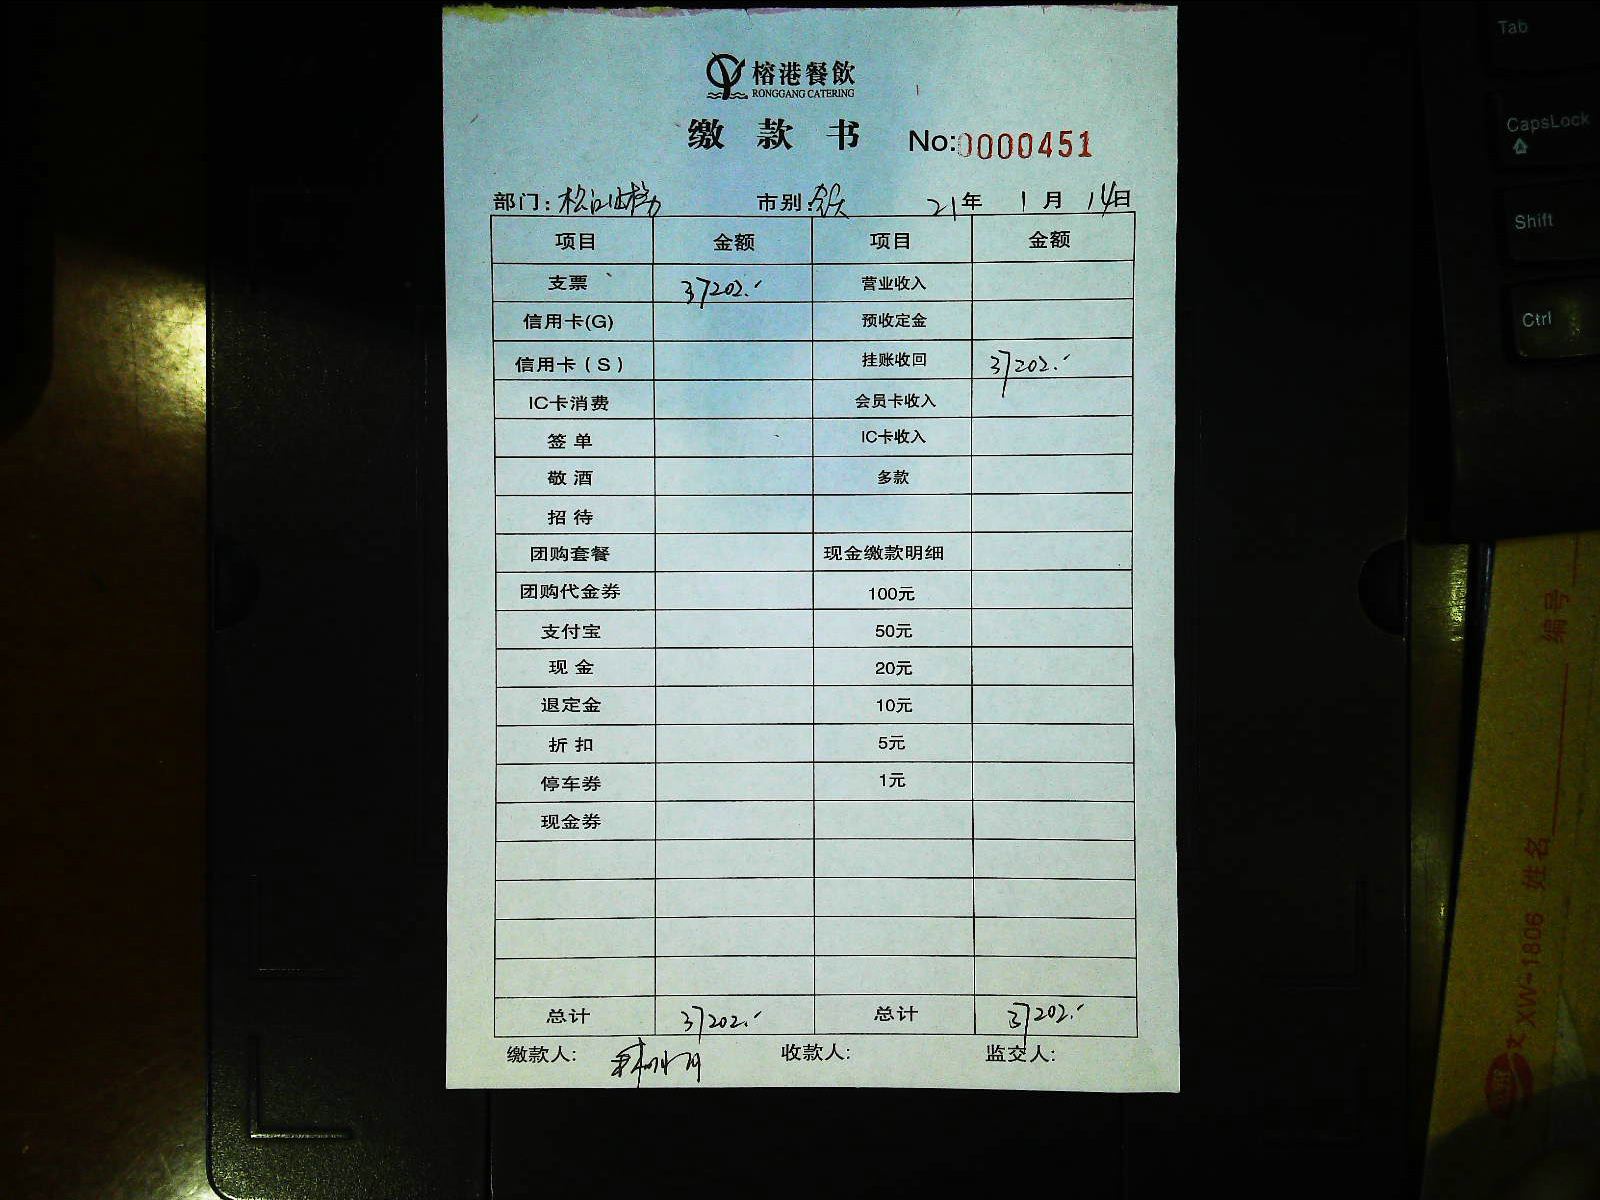 榕港餐飲
RONGGANG CATERING
缴 款 书 No:0000451
部门: 市别: 21年 1月 14日
项目 金额 项目 金额
支票 37202.- 营业收入
信用卡(G) 预收定金
信用卡（S） 挂账收回 37202.-
IC卡消费 会员卡收入
签 单 IC卡收入
敬 酒 多款
招 待
团购套餐 现金缴款明细
团购代金券 100元
支付宝 50元
现 金 20元
退定金 10元
折 扣 5元
停车券 1元
现金券
总计 37202.- 总计 37202.-
缴款人: 收款人: 监交人:
Tab
CapsLock
Shift
Ctrl
编号
XW-1806 姓名